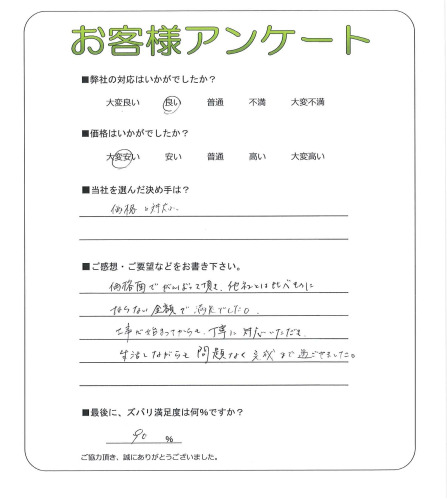 お客様アンケート
■弊社の対応はいかがでしたか？
大変良い 良い 普通 不満 大変不満
■価格はいかがでしたか？
大変安い 安い 普通 高い 大変高い
■当社を選んだ決め手は？
価格と対応
■ご感想・ご要望などをお書き下さい。
価格面でがんばって頂き、他社とは比べものに
ならない金額で満足でした。
工事が始まってからも、丁寧に対応いただき
生活しながらも問題なく完成まで過ごせました。
■最後に、ズバリ満足度は何%ですか？
90 %
ご協力頂き、誠にありがとうございました。